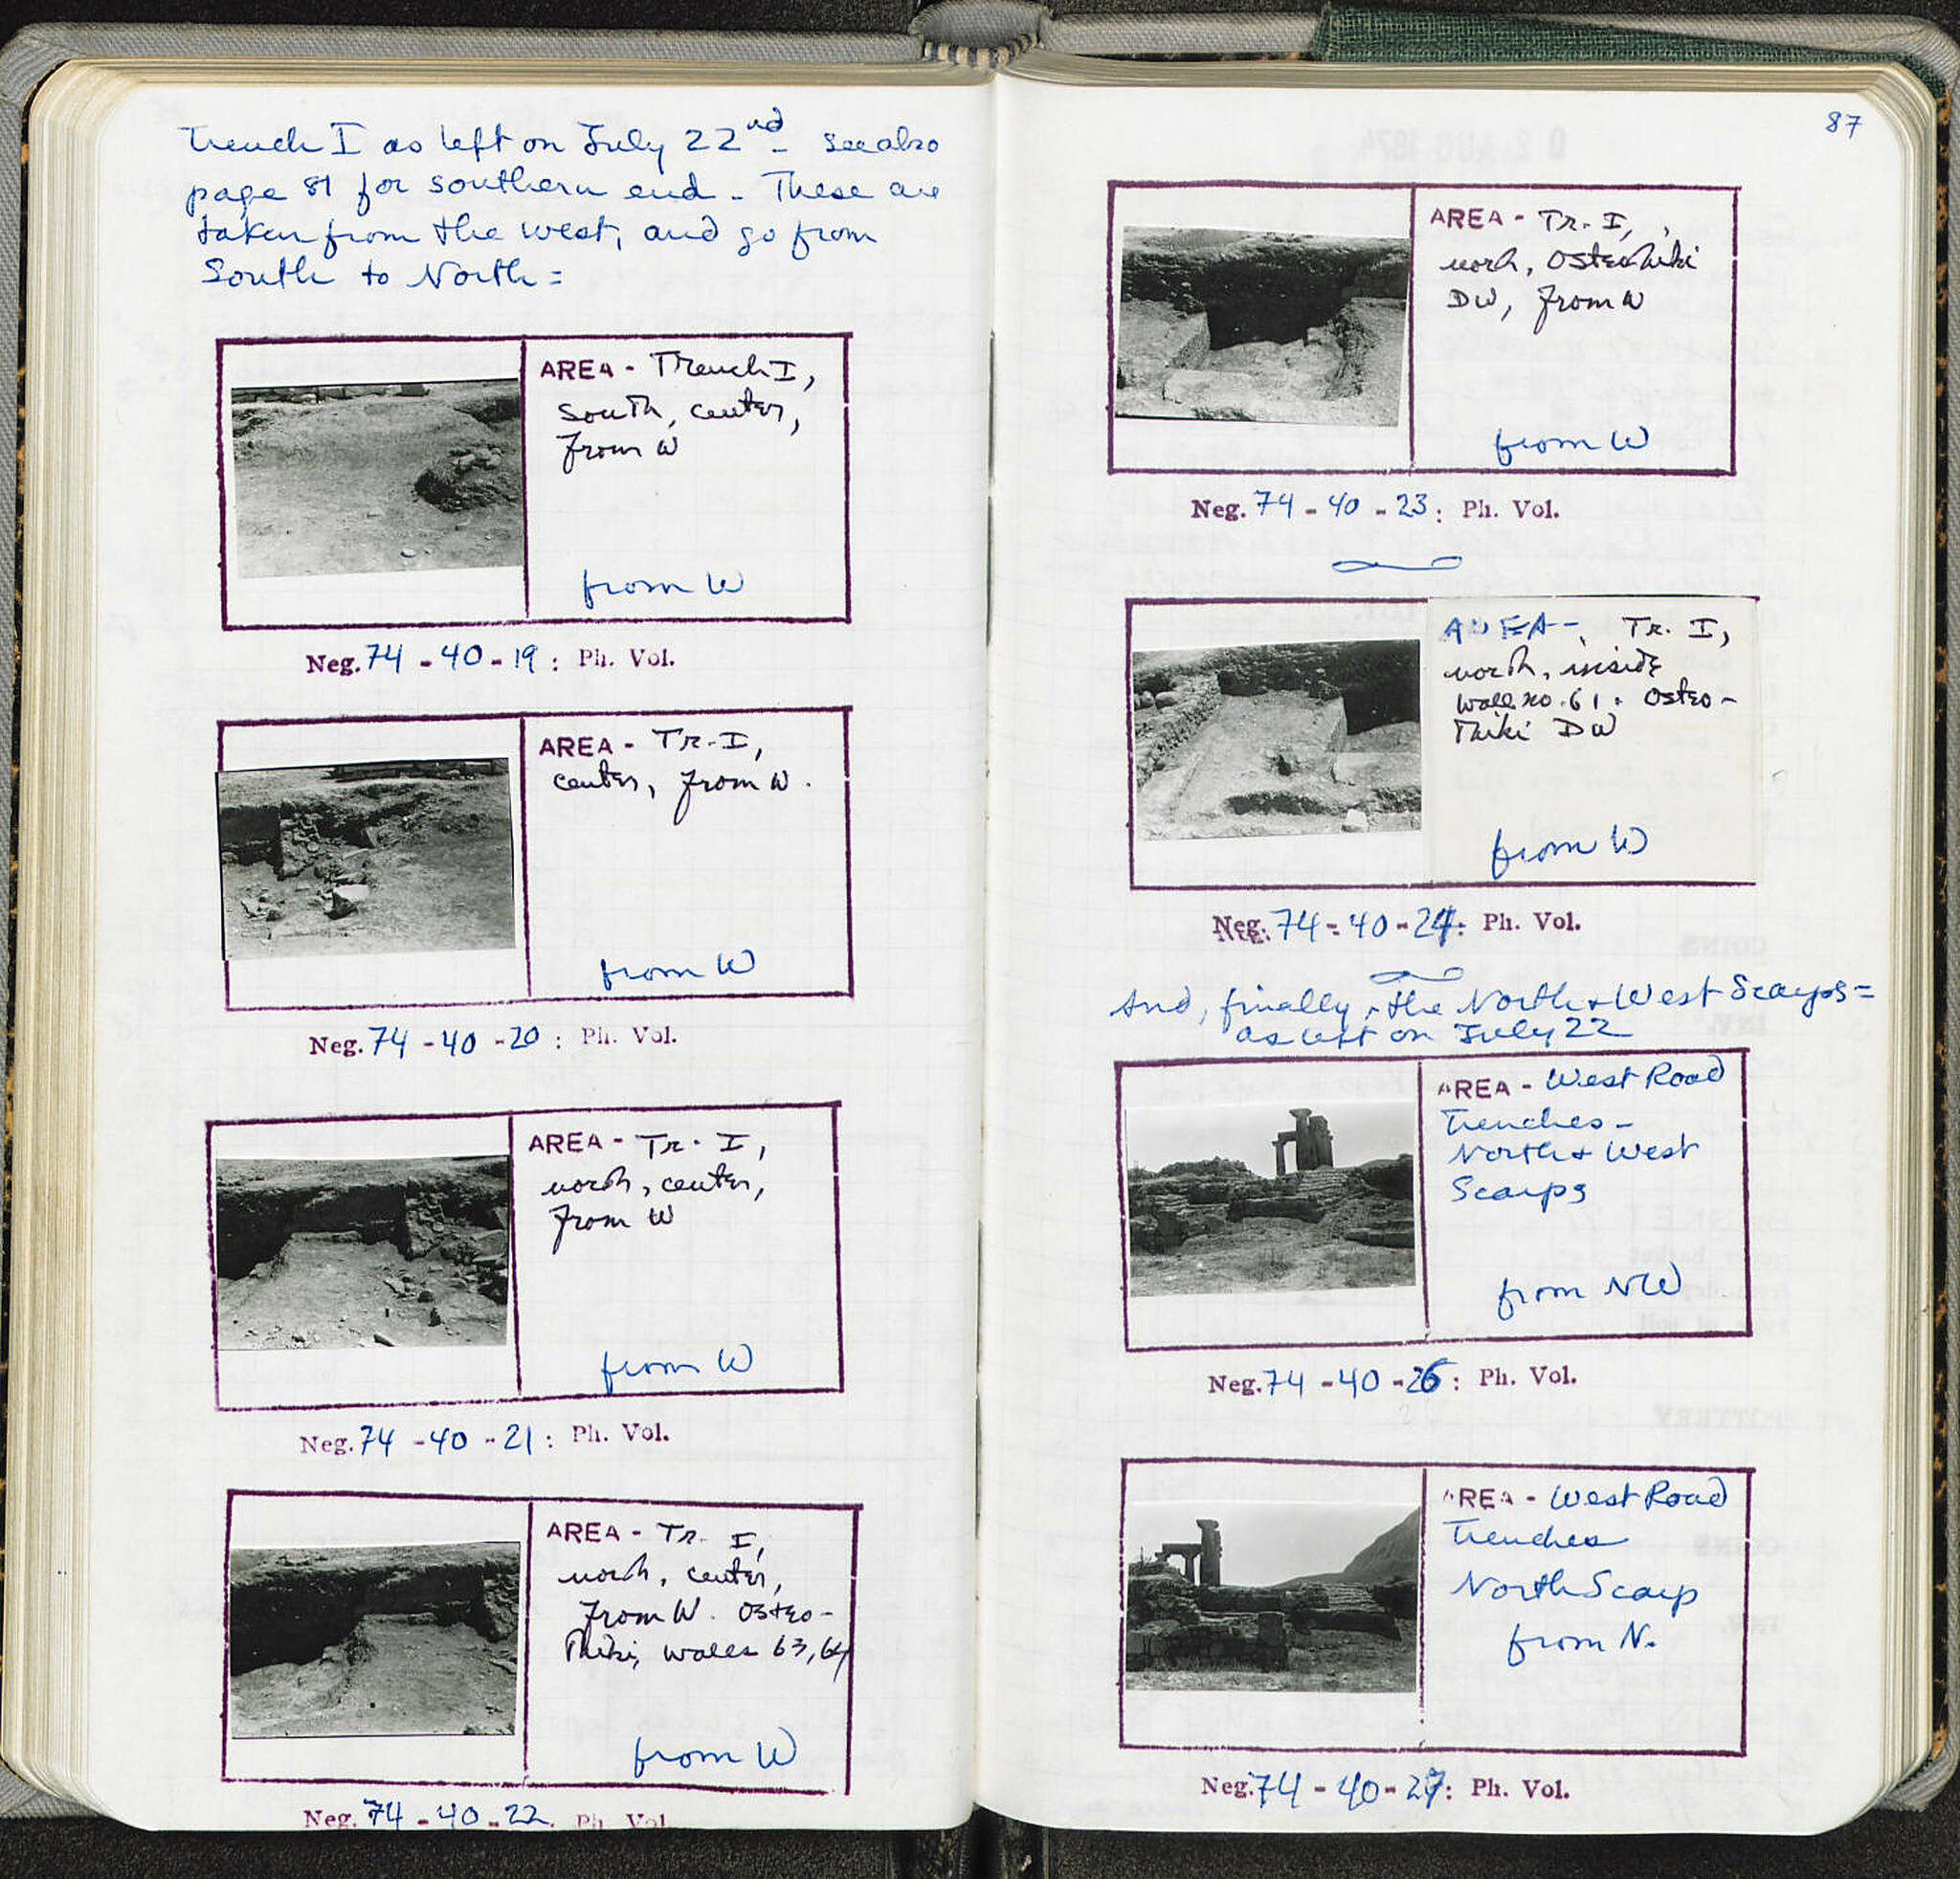 Trench I as left on July 22nd - see also
page 81 for southern end - These are
taken from the west, and go from
South to North =
AREA - Trench I,
south, center,
from W
from W
Neg. 74 - 40 - 19 : Ph. Vol.
AREA - Tr. I,
center, from W.
from W
Neg. 74 - 40 - 20 : Ph. Vol.
AREA - Tr. I,
north, center,
from W
from W
Neg. 74 - 40 - 21 : Ph. Vol.
AREA - Tr. I,
north, center,
from W. Osteo-
thiki, walls 63, 64
from W
Neg. 74 - 40 - 22 Ph Vol
87
AREA - Tr. I,
north, Osteothiki
DW, from W
from W
Neg. 74 - 40 - 23 : Ph. Vol.
AREA - Tr. I,
north, inside
wall no. 61. Osteo-
thiki DW
from W
Neg. 74 - 40 - 24 : Ph. Vol.
And, finally, the North & West Scarps =
as left on July 22
AREA - West Road
Trenches -
North & West
Scarps
from NW
Neg. 74 - 40 - 26 : Ph. Vol.
AREA - West Road
Trenches
North Scarp
from N.
Neg. 74 - 40 - 27 : Ph. Vol.